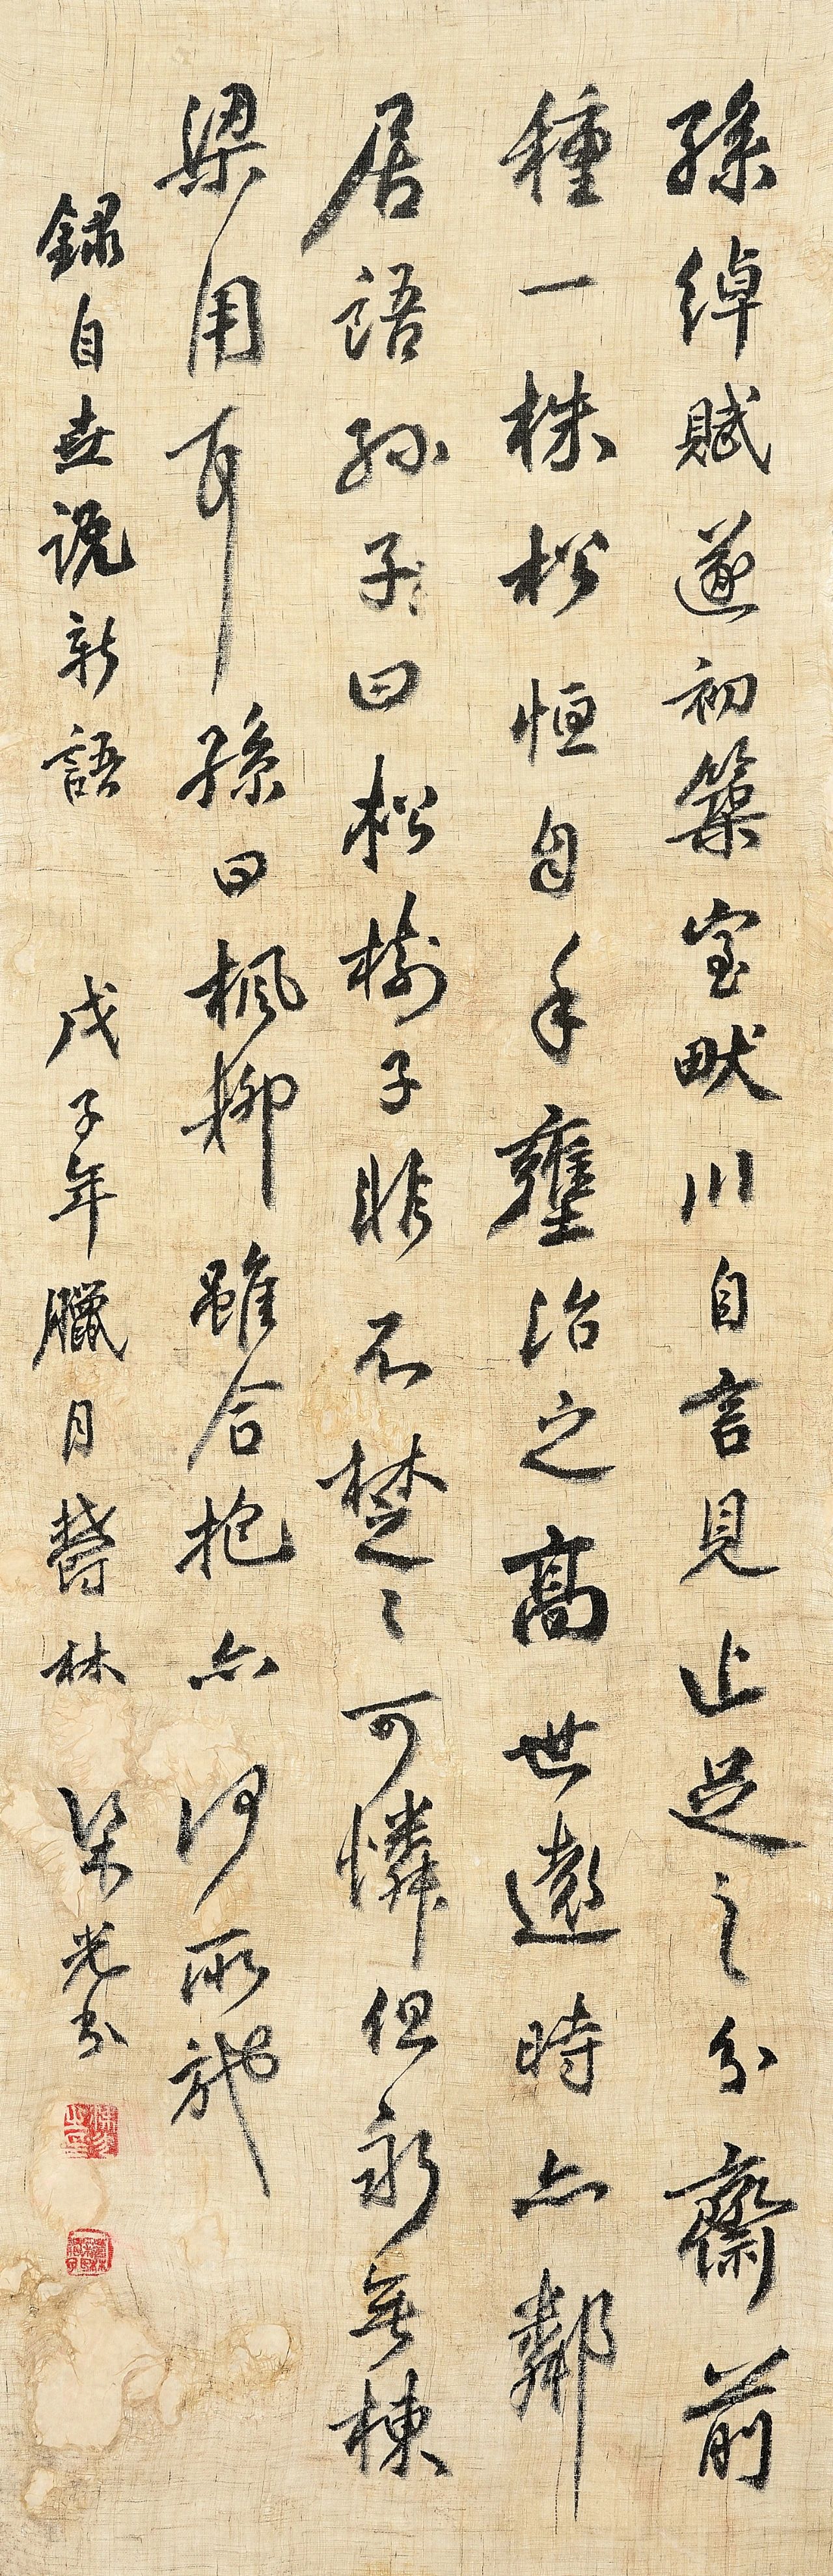 孫綽賦遂初築室畎川自言見止足之分齋前
種一株松恒自手壅治之高世遠時亦鄰
居語孫子曰松樹子非不楚〻可憐但永無棟
梁用耳孫曰楓柳雖合抱亦何所施
錄自世說新語 戊子年臘月 林 梁光